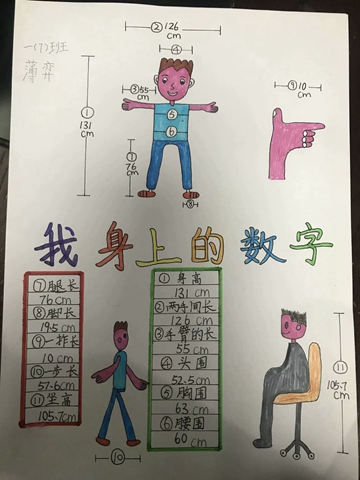 ② 126
cm
一(7)班
薄弈
④
① 131 cm
③ 55
cm
⑤
⑥
① 76 cm
⑧
⑨ 10
cm
我身上的数字
⑦ 腿长
76 cm
⑧ 脚长
19.5 cm
⑨ 一拃长
10 cm
⑩ 一步长
57.6 cm
⑪ 坐高
105.7 cm
① 身高
131 cm
② 两手间长
126 cm
③ 手臂的长
55 cm
④ 头围
52.5 cm
⑤ 胸围
63 cm
⑥ 腰围
60 cm
⑩
⑪
105.7
cm